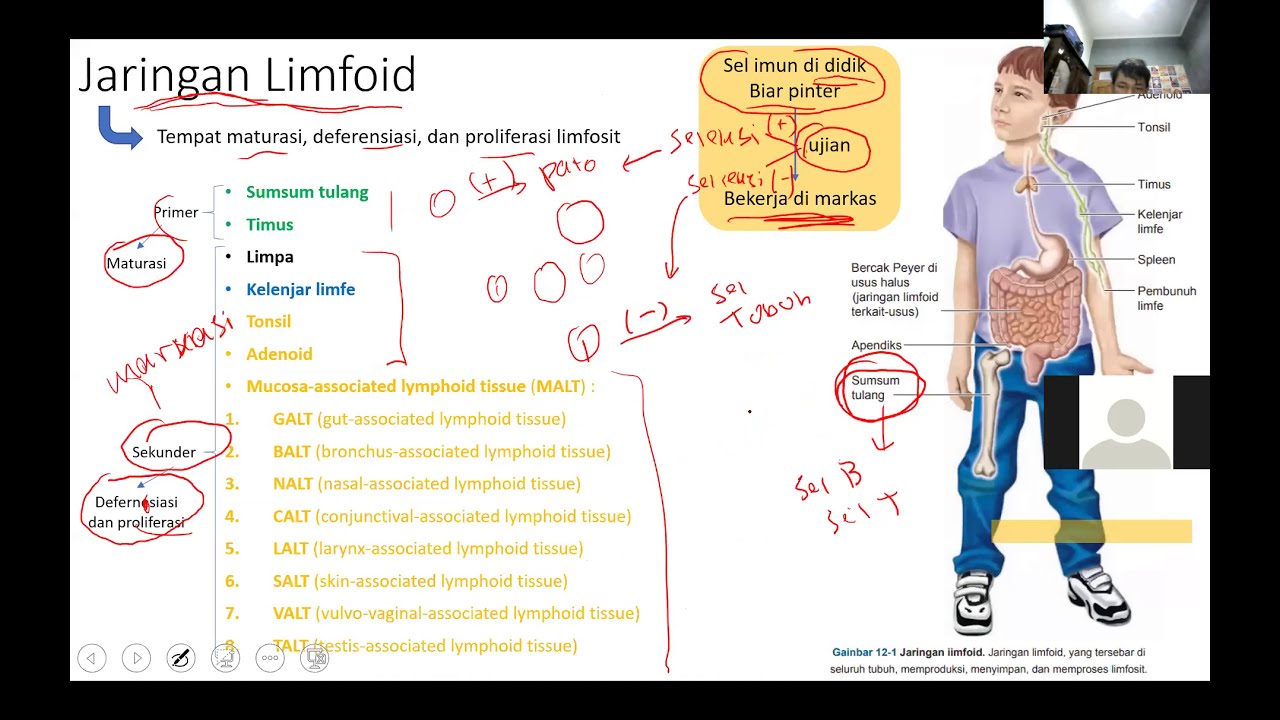 Jaringan Limfoid
Tempat maturasi, deferensiasi, dan proliferasi limfosit
Primer
Maturasi
• Sumsum tulang
• Timus
• Limpa
• Kelenjar limfe
• Tonsil
• Adenoid
• Mucosa-associated lymphoid tissue (MALT) :
1. GALT (gut-associated lymphoid tissue)
2. BALT (bronchus-associated lymphoid tissue)
3. NALT (nasal-associated lymphoid tissue)
4. CALT (conjunctival-associated lymphoid tissue)
5. LALT (larynx-associated lymphoid tissue)
6. SALT (skin-associated lymphoid tissue)
7. VALT (vulvo-vaginal-associated lymphoid tissue)
8. TALT (testis-associated lymphoid tissue)
Sekunder
Defernesiasi
dan proliferasi
(+)
pato
(-)
sel
Tubuh
Sel imun di didik
Biar pinter
(+)
ujian
(-)
Bekerja di markas
Adenoid
Tonsil
Timus
Kelenjar
limfe
Spleen
Pembunuh
limfe
Bercak Peyer di
usus halus
(jaringan limfoid
terkait-usus)
Apendiks
Sumsum
tulang
sel B
sel T
Gainbar 12-1 Jaringan iimfoid. Jaringan limfoid, yang tersebar di
seluruh tubuh, memproduksi, menyimpan, dan memproses limfosit.